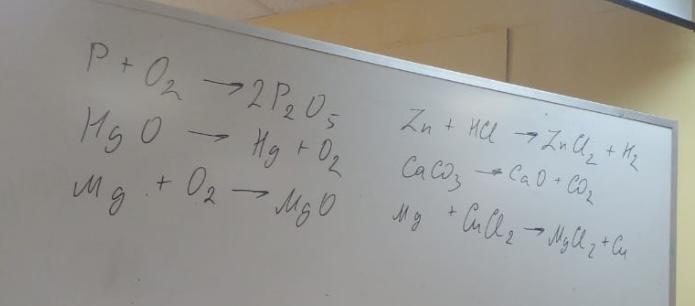 P + O₂ → 2P₂O₅
HgO → Hg + O₂
Mg + O₂ → MgO
Zn + HCl → ZnCl₂ + H₂
CaCO₃ → CaO + CO₂
Mg + CuCl₂ → MgCl₂ + Cu